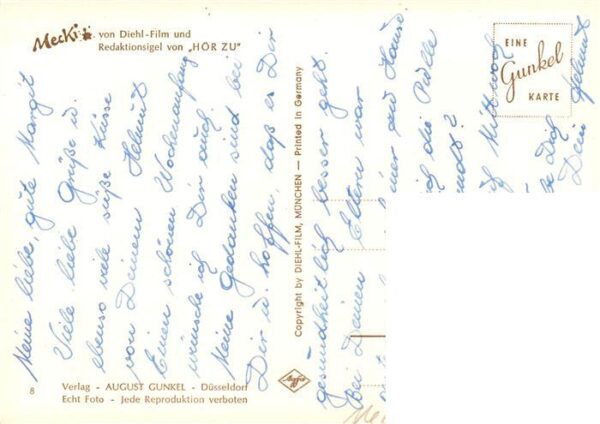 Mecki von Diehl-Film und
Redaktionsigel von „HÖR ZU"
EINE
Gunkel
KARTE
Meine liebe, gute Margit
Viele liebe Grüße u.
ebenso viele süße Küsse
von Deinem Helmut
Einen schönen Wochenanfang
wünsche ich Dir auch.
Meine Gedanken sind bei
Dir u. hoffen, daß es Dir
gesundheitlich besser geht.
Bei Deinen Eltern war
zu Hause
ich die Pulle
Mittwoch
Dich
Dein Helmut
Copyright by DIEHL-FILM, MÜNCHEN — Printed in Germany
Agfa
8
Verlag - AUGUST GUNKEL - Düsseldorf
Echt Foto - Jede Reproduktion verboten